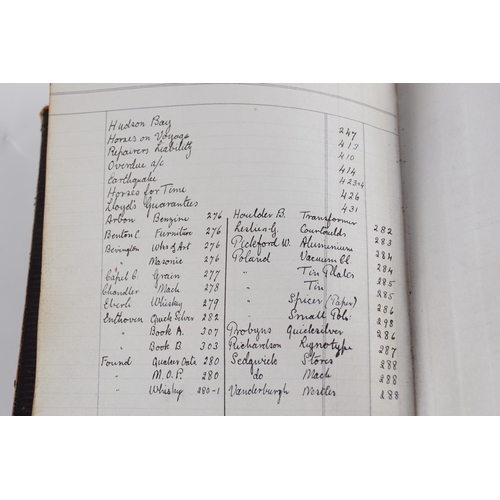 Hudson Bay 247
Horses on Voyage 413
Repairers Liability 410
Overdue a/c 414
Earthquake 423+4
Horses for Time 426
Lloyd's Guarantees 431
Arbon Benzine 276 Houlder B. Transformer 282
Benton C. Furniture 276 Courtaulds 283
Bevington Wks of Art 276 Pickford W. Aluminium 284
" Masonic 276 Poland Vacuum Cl. 284
Capel C. Grain 277 " Tin Plates 285
Chandler Mach 278 " Tin 285
Eberli Whisky 279 " Spicer (Paper) 286
Enthoven Quick Silver 282 " Small Pols. 298
" Book A. 307 Probyns Quicksilver 286
" Book B 303 Richardson Lignotype 287
Found Quaker Oats 280 Sedgwick Stores 288
" M.O.P. 280 do Mach 288
" Whisky 280-1 Vanderburgh Nestles 288